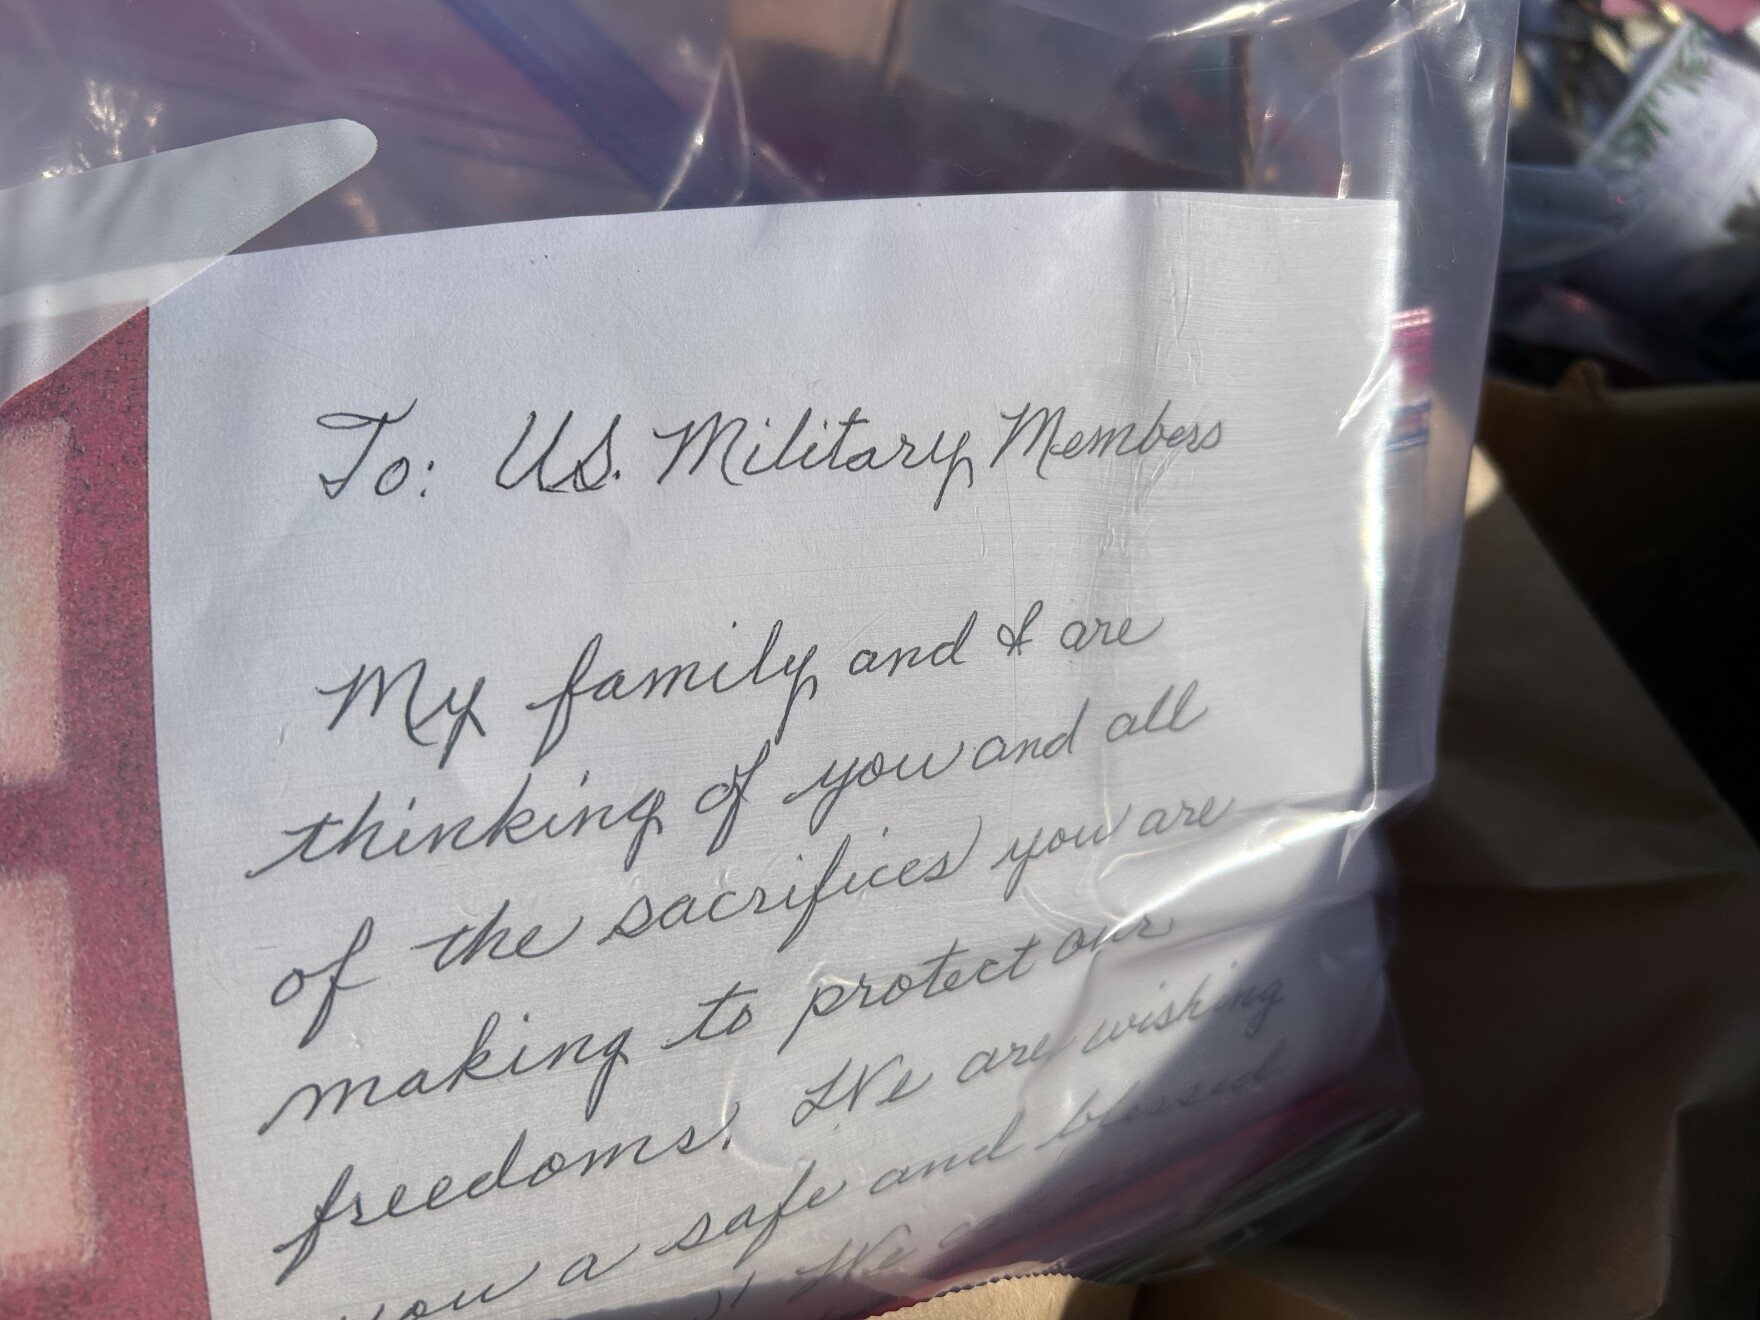 To: U.S. Military Members
My family and I are
thinking of you and all
of the sacrifices you are
making to protect our
freedoms. We are wishing
you a safe and blessed
We